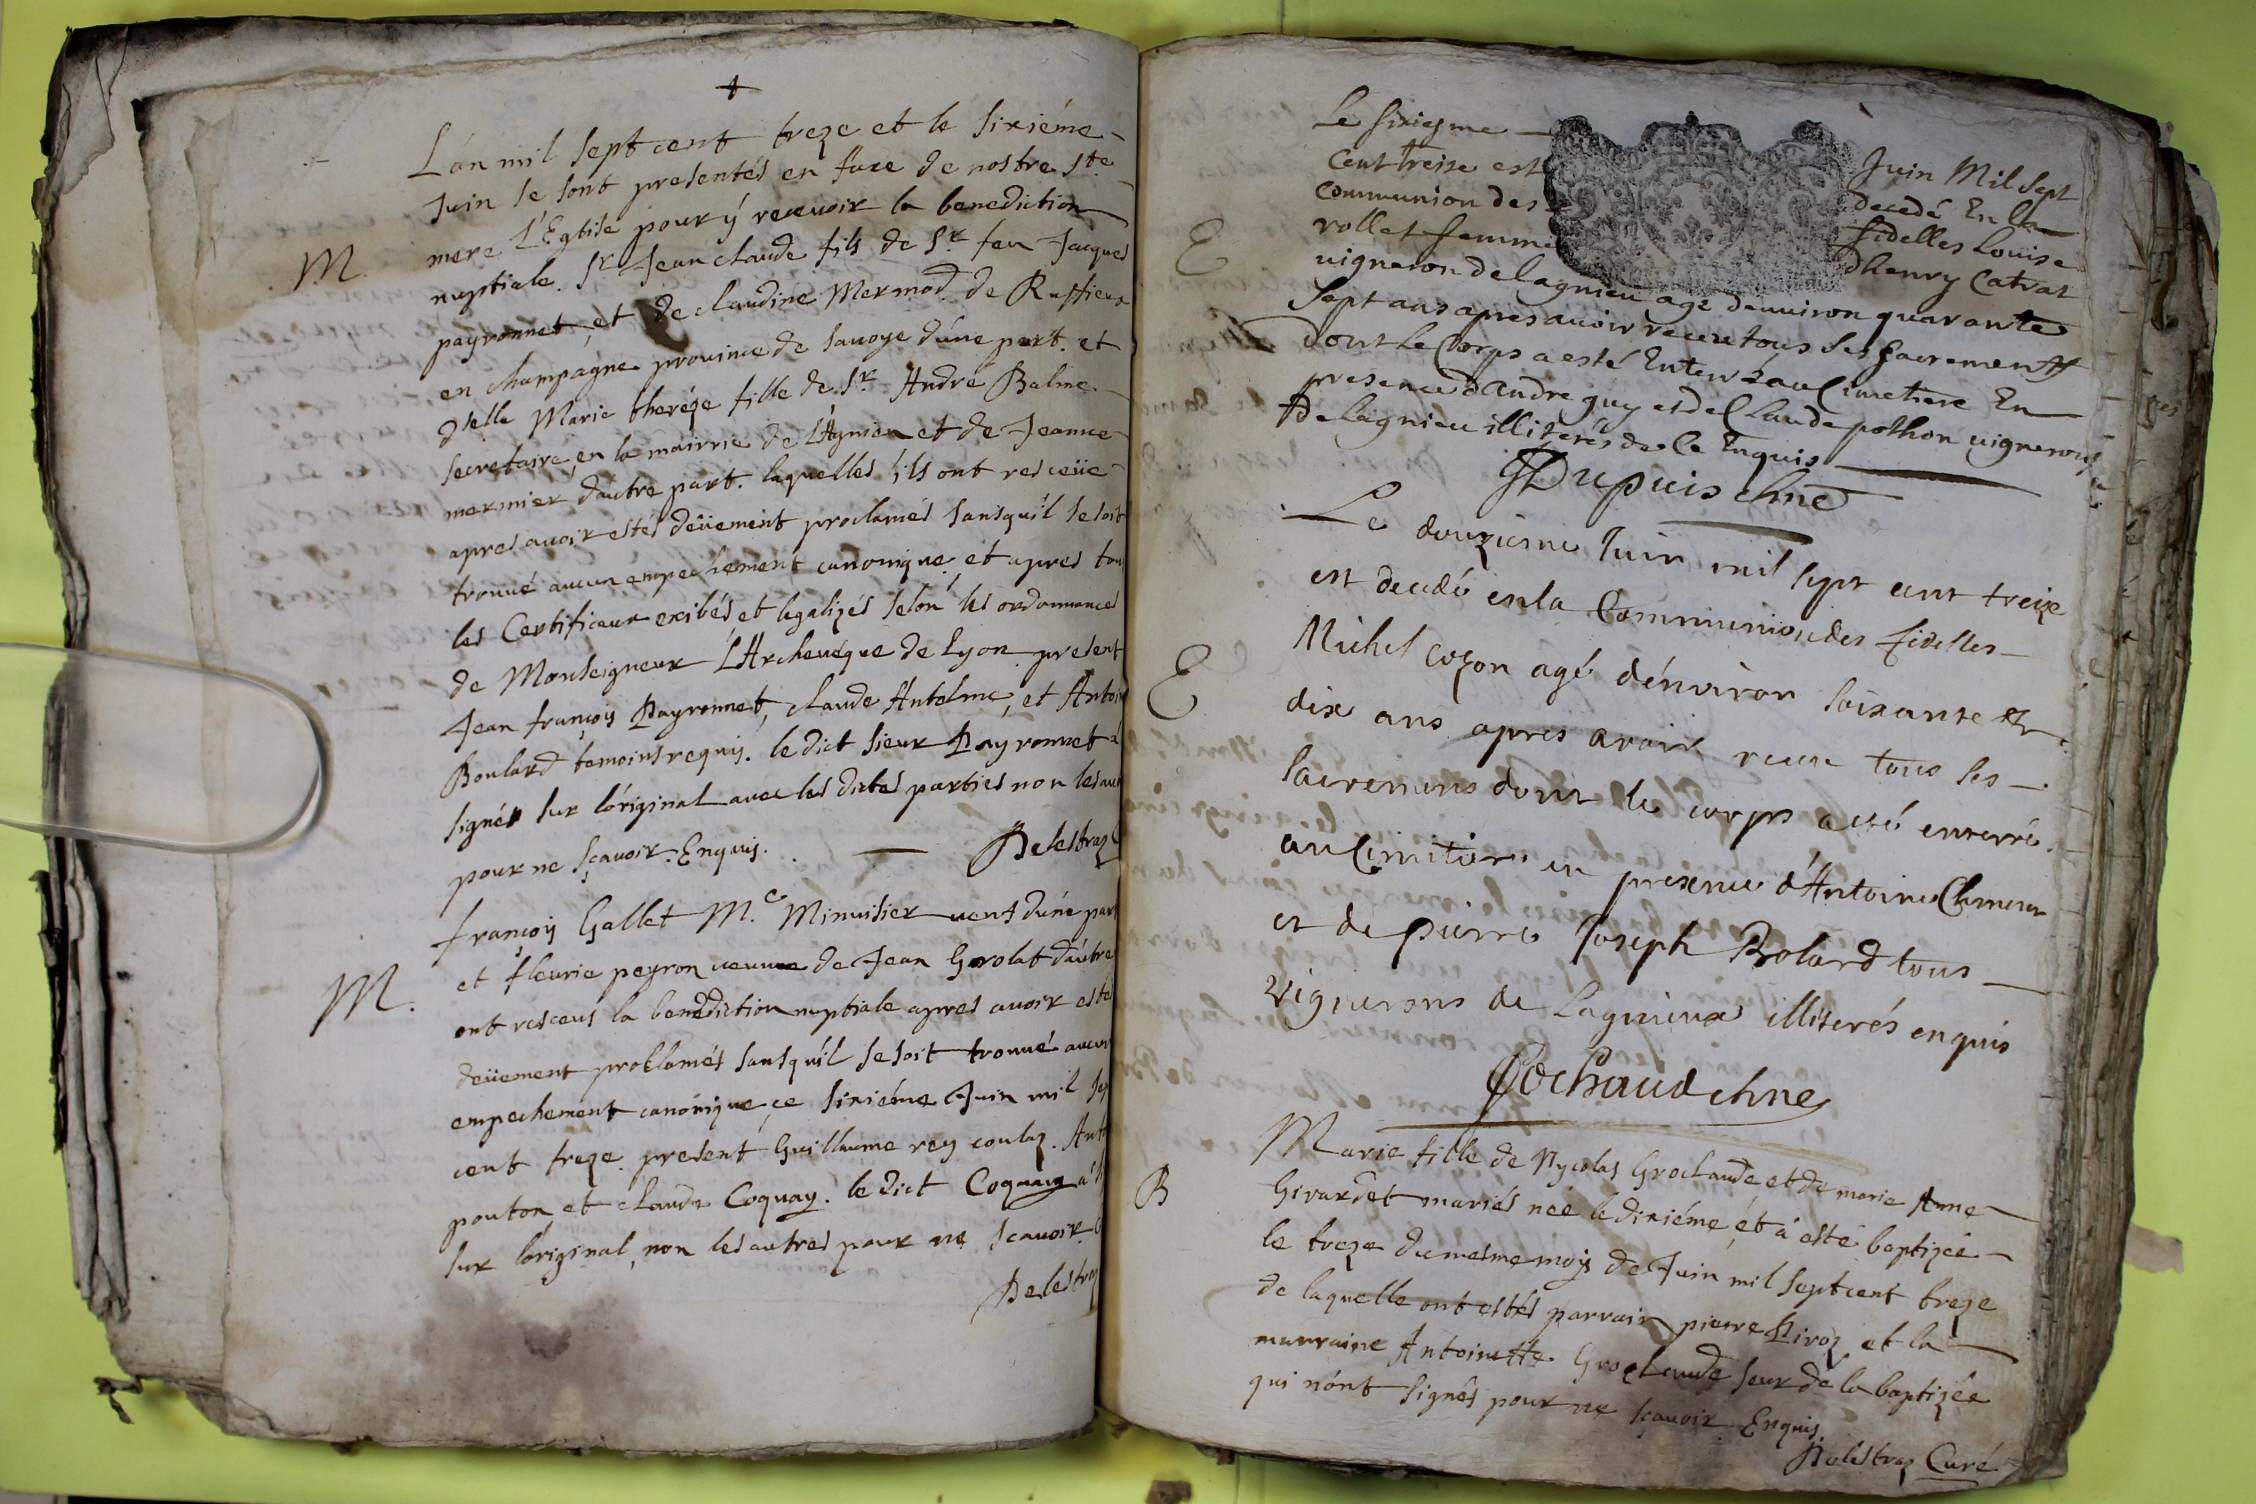 L'an mil sept cent treze et le sixiéme
Juin se sont presentés en face de nostre ste
mere L'Eglise pour ÿ recevoir la benediction
M.
nuptiale. Sr Jean claude fils de Sr feu Jacques
payronnet, et de claudine Mermod de Ruffieux
en champagne province de savoye d'une part. et
dselle Marie thereze fille de Sr André Balme
secretaire en la mairrie de L'Agnieu et de Jeanne
mermier d'autre part. laquelles ils ont resceüe
apres avoir estés deüement proclamés sans qu'il se soit
trouvé aucun empechement canonique et apres tou
les Certificaux exibés et legalizés selon les ordonnances
de Monseigneur L'Archeveque de Lyon present
Jean françois Payronnet, claude Antelme, et Antoi
Boulard temoins requis. le dict sieur Payronnet a
signé sur l'original avec les dictes parties non les aut
pour ne sçavoir. Enquis. Delestraz
françois Gallet M.e Minuisier veuf d'une part
M.
et fleurie peyron veuve de Jean Grolat d'autre
ont resceus la benediction nuptiale apres avoir estés
deüement problamés sans qu'il se soit trouvé aucun
empechement canonique ce sixiéme Juin mil sep
cent treze present Guillaume rey coulaz. Anto
pouton et claude Coquay. le dict Coquay a
sur l'original, non les autres pour ne scavoir.
Delestraz
Le sixiesme Juin Mil sept
cent treise est decedé En la
communion des fidelles Louise
E
rollet femme dhenry Catrat
vigneron de lagnieu age denviron quarante
sept ans apres avoir receu tous les sacrements
dont le Corps a esté Enterré au Cimetiere En
presence dAndre guy et de Claude pothon vignerons
de lagnieu illiterés de Ce Enquis
Dupuis
Le douzieme Juin mil sept cent treize
est decedé en la Communion des fidelles
Michel cozon agé d'environ soixante et
E
dix ans apres avoir receu tous les
sacremens dont le corps a eté enterré
au Cimitiere en presence d'Antoine
et de pierre Joseph Bolard tous
vignerons de Lagnieux illiterés enquis
Cochaud
Marie fille de Nycolas Groclaude et de marie Anne
B
Girardet mariés née le dixiéme et à esté baptizée
le treze du mesme mois de Juin mil sept cent treze
de laquelle ont estés parrain pierre Piroz et la
marraine Antoinette Groclaude seur de la baptizée
qui n'ont signés pour ne sçavoir Enquis.
Delestraz Curé